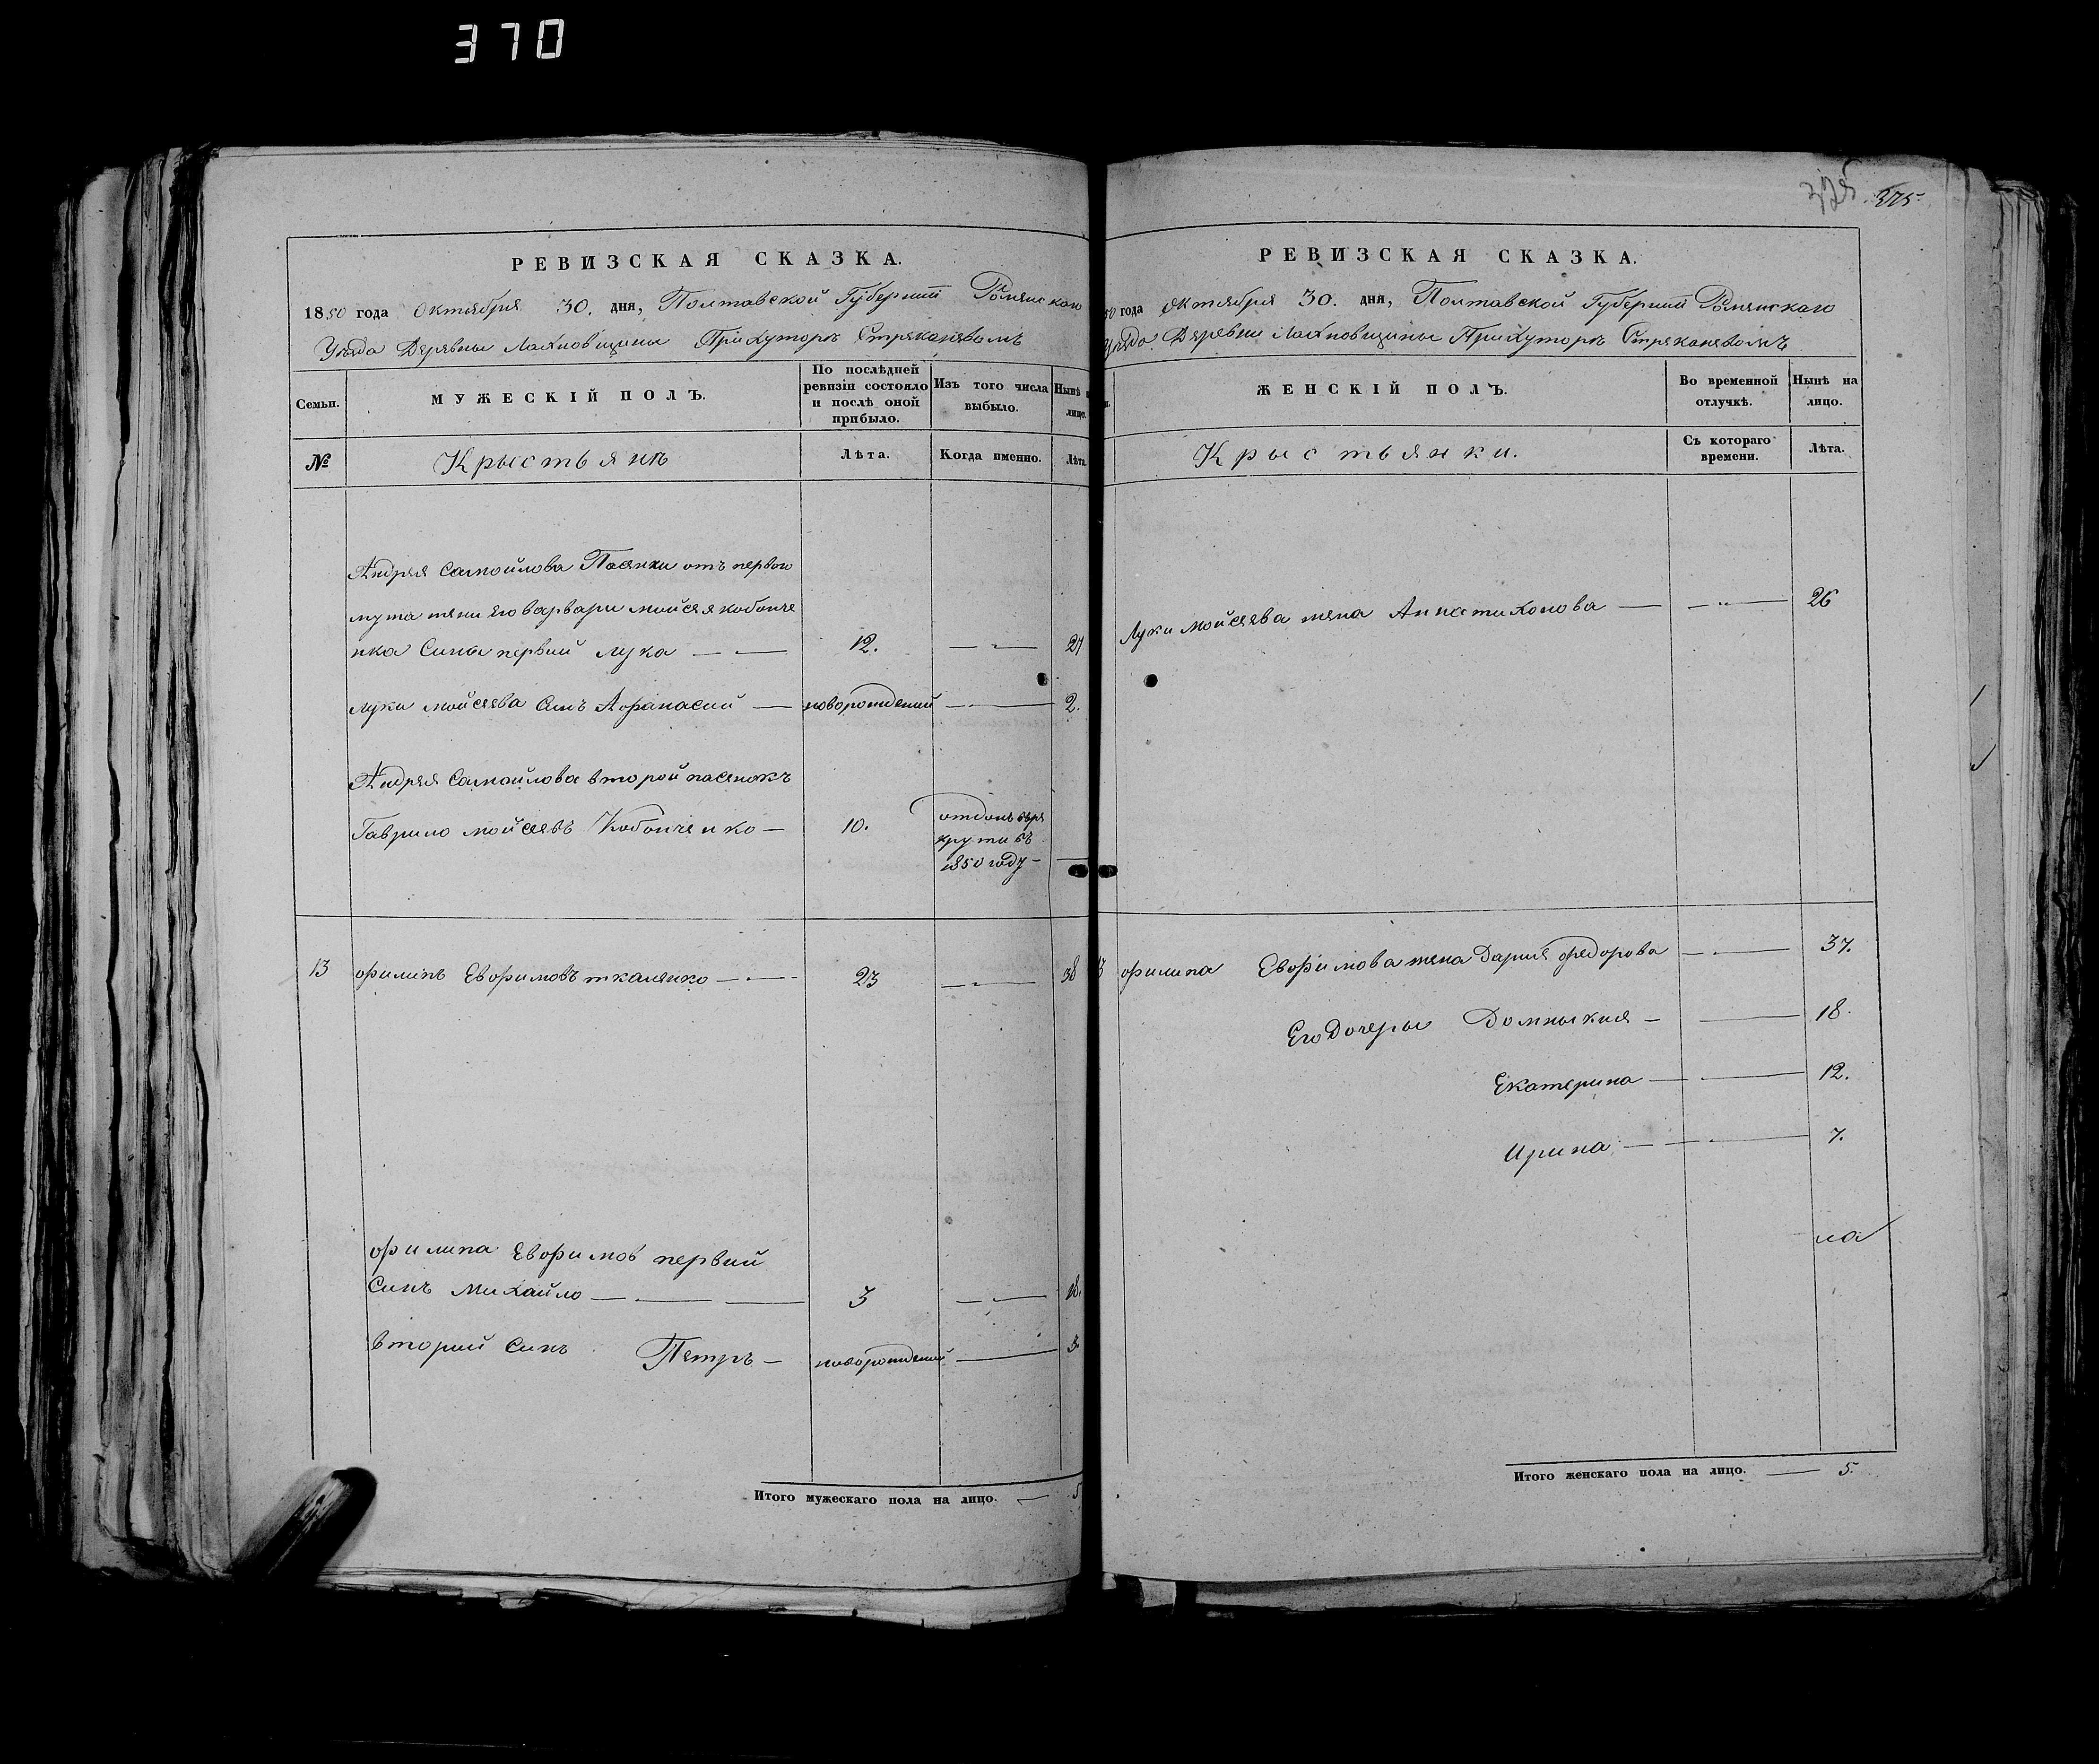 370
325 375
РЕВИЗСКАЯ СКАЗКА.
1850 года Октября 30. дня, Полтавской Губернии Роменскаго
Уезда Деревны Лахновщины При Хуторе
Семьи.
МУЖЕСКІЙ ПОЛЪ.
По послѣдней ревизіи состояло и послѣ оной прибыло.
Изъ того числа выбыло.
Нынѣ
лицо.
№
Крыстьяне
Лѣта.
Когда именно.
Лѣта.
Андрея Самойлова Пасенки отъ первого
мужа жени его Варвари Мойсея Кобонче
нка Сины первий Лука — — 12. — 27
Луки Мойсеева Синъ Афанасий — новорождений — 2.
Андрея Самойлова второй пасенокъ
Гаврило Мойсеевъ Кобонченко — 10.
отдонъ въре
крути въ
1850 году —
13 Филипъ Евфимовъ Ткаленко — — 23 — 38
Филипа Евфимов первий
Синъ Михайло — — — 3 — 18.
вторий Синъ Петръ — новорождений — 3.
Итого мужескаго пола на лицо. — 5
РЕВИЗСКАЯ СКАЗКА.
50 года Октября 30. дня, Полтавской Губернии Роменскаго
Уезда Деревни Лахновщины При Хуторе
ЖЕНСКІЙ ПОЛЪ.
Во временной отлучкѣ.
Нынѣ на лицо.
Крыстьянки.
Съ котораго времени.
Лѣта.
Луки Мойсеева жена Анна Тихонова — — 26
Филипа Евфимова жена Дария Федорова — 37.
Его Дочеры Домныкия — — 18.
Екатерина — — 12.
Ирина — — 7.
на
Итого женскаго пола на лицо. — 5.